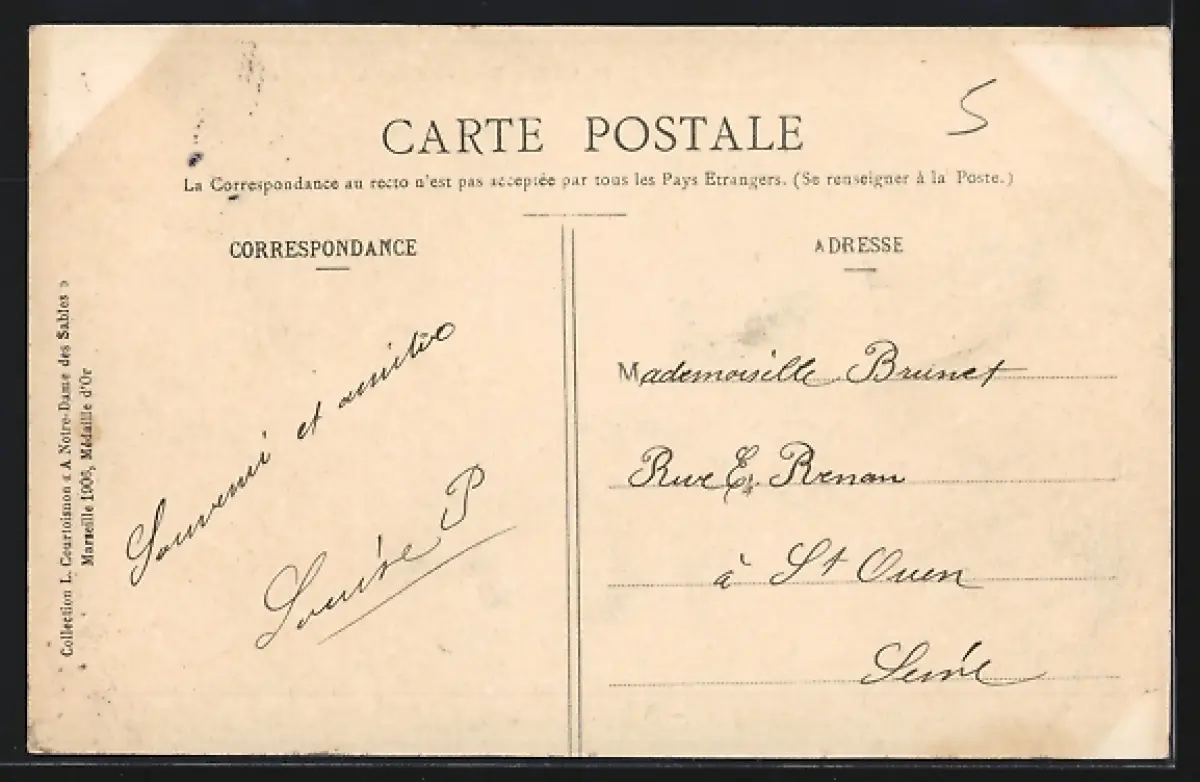 5
CARTE POSTALE
La Correspondance au recto n'est pas acceptée par tous les Pays Etrangers. (Se renseigner à la Poste.)
CORRESPONDANCE
Souvenir et amitié
Louise P
Collection L. Courtoisnon « A Notre-Dame des Sables »
Marseille 1906, Médaille d'Or
ADRESSE
Mademoiselle Brunet
Rue E. Renan
à St Ouen
Seine